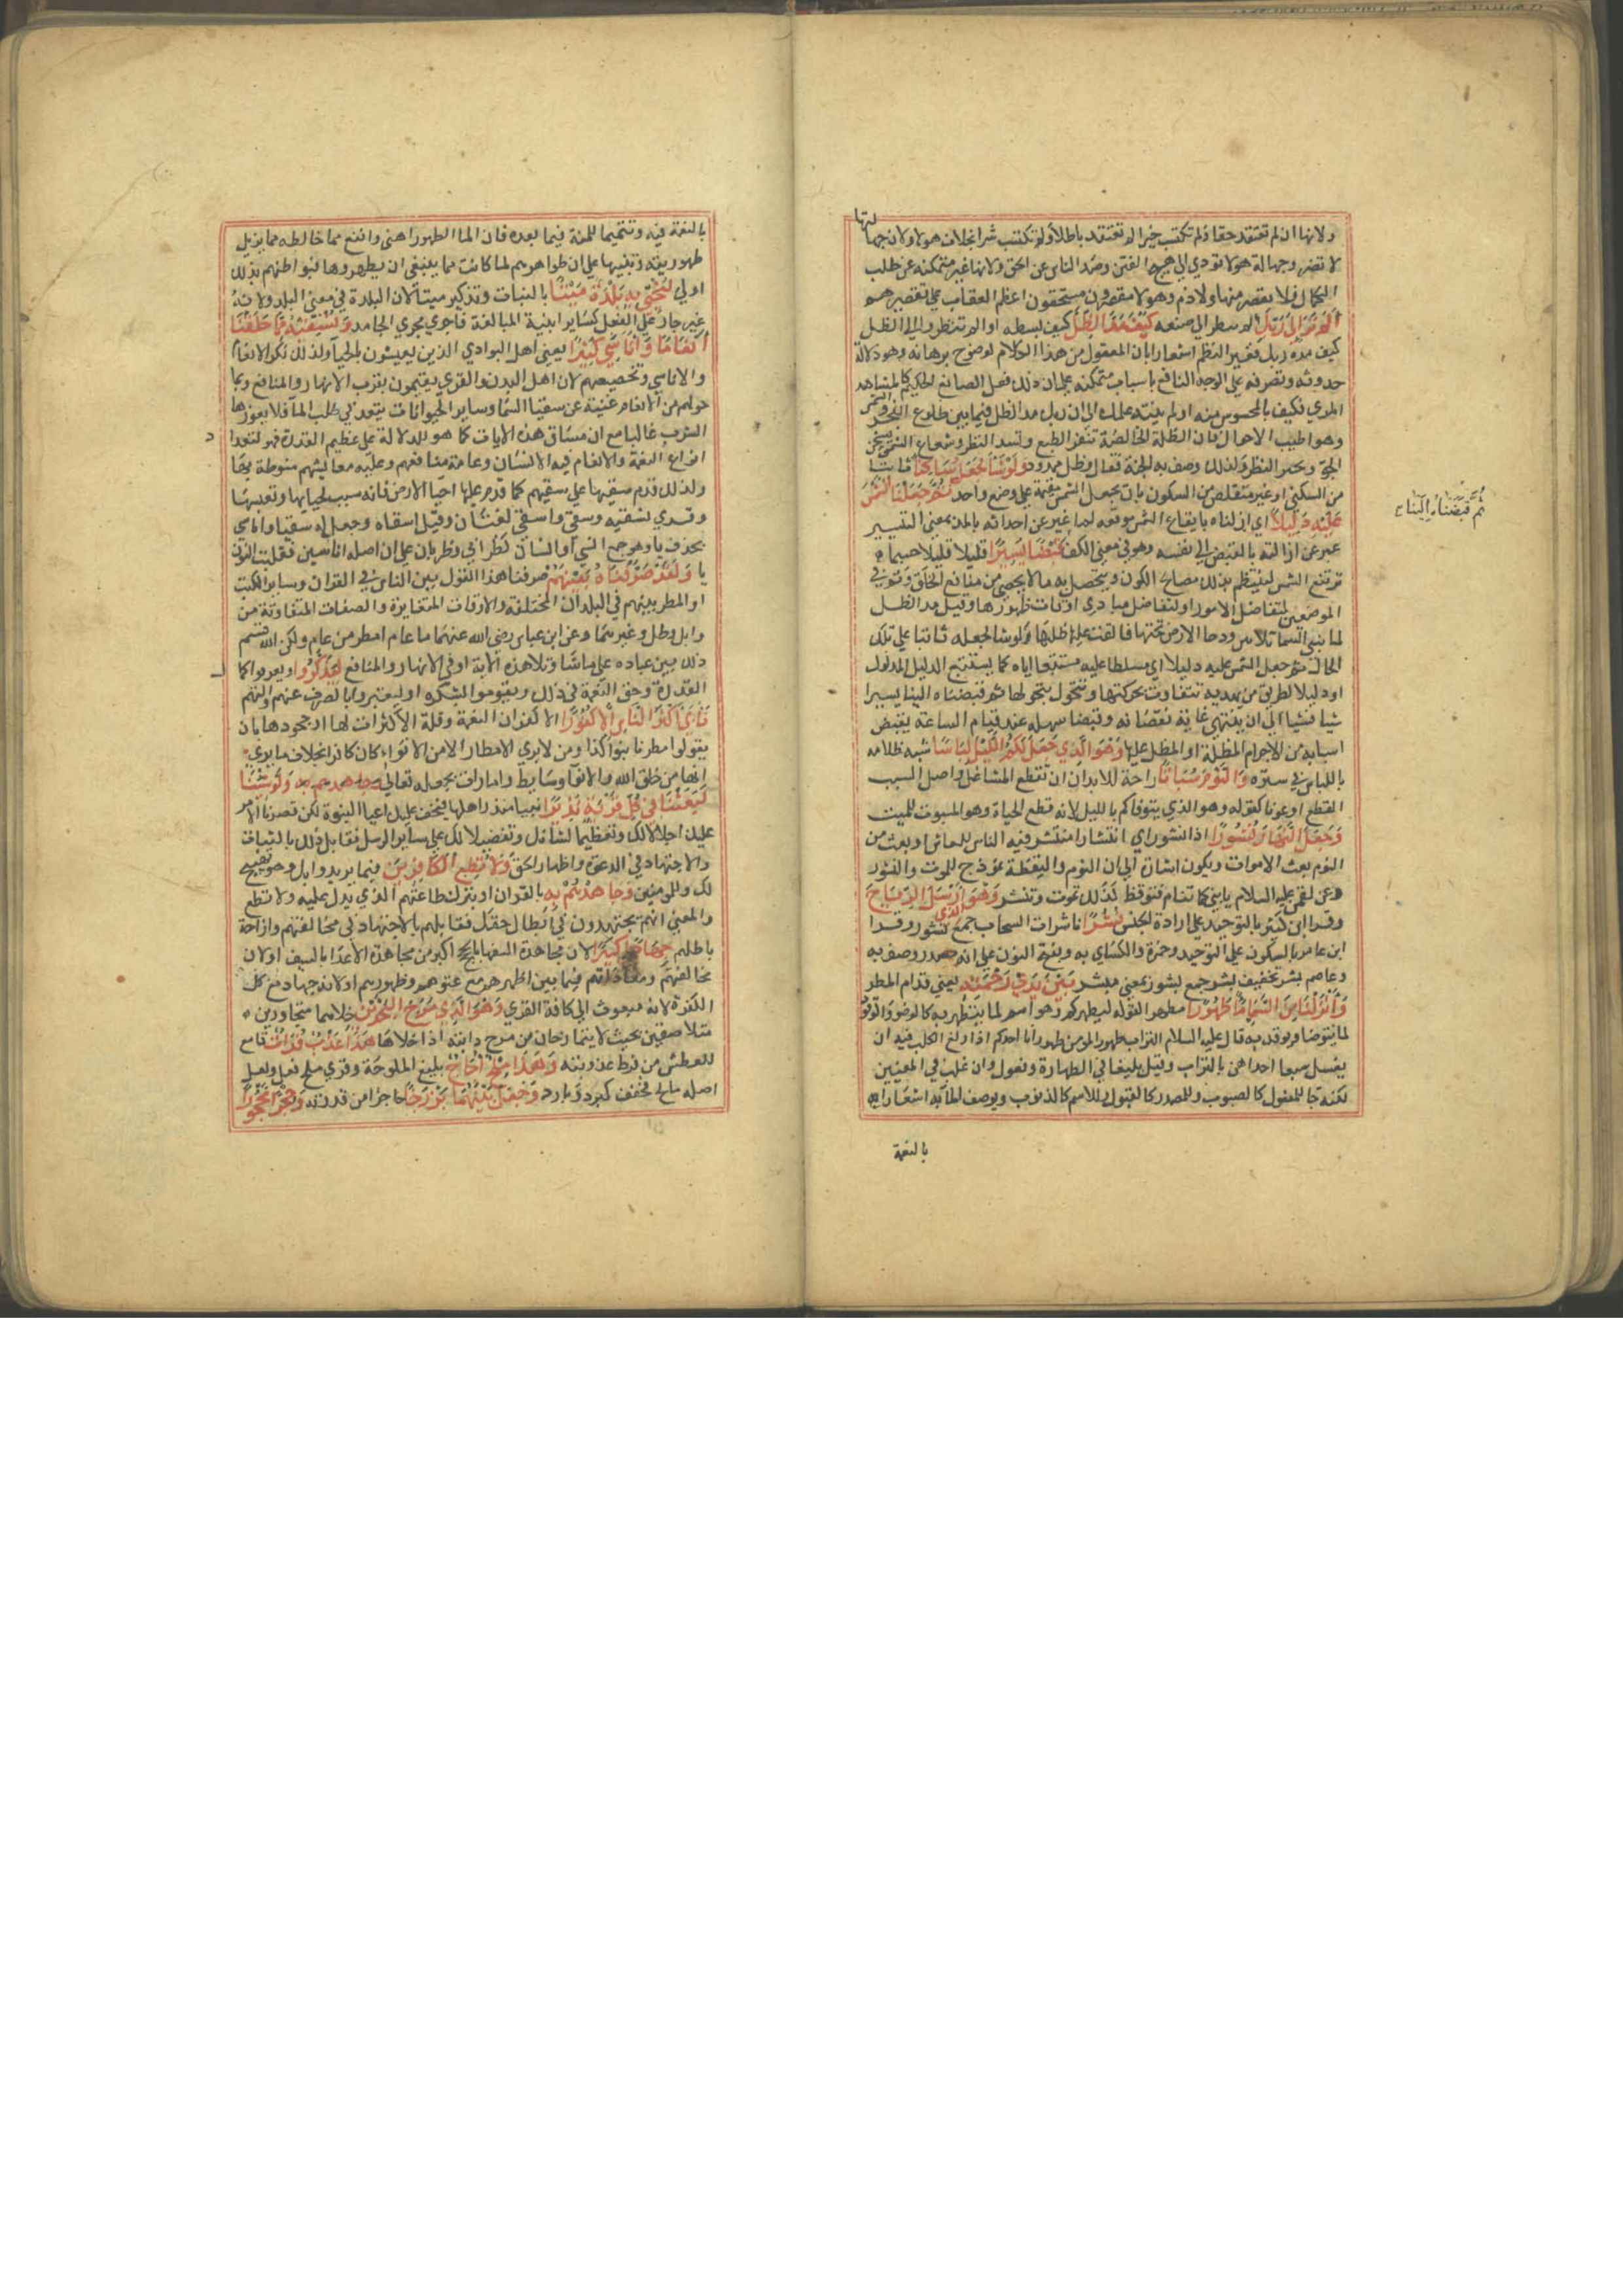 ولانها ان لم تعتقد حقا ولم تكتسب خيرا لم تعتقد باطلا ولم تكتسب شرا بخلاف هولا ولان جهالتها
لا تضر وجهالة هولا تودي الي هيج الفتن وصد الناس عن الحق ولانها غير متمكنة عن طلب
الكمال فلا تقصير منها ولا ذم وهولا مقصرون مستحقون اعظم العقاب علي تقصيرهم
الم تر الي ربك الم تنظر الي صنعه كيف مد الظل كيف بسطه او الم تنظر الي الظل
كيف مده ربك فغير النظم اشعارا بان المعقول من هذا الكلام لوضوح برهانه وهو دلالة
حدوثه وتصرفه علي الوجه النافع باسباب ممكنة علي ان ذلك فعل الصانع الحكيم كالمشاهد
المري فكيف بالمحسوس منه او لم ينته علمك الي ان ربك مد الظل فيما بين طلوع الفجر والشمس
وهو اطيب الاحوال فان الظلمة الخالصة تنفر الطبع وتسد النظر وشعاع الشمس يسخن
الجو ويبهر النظر ولذلك وصف به الجنة فقال وظل ممدود ولو شا لجعله ساكنا ثابتا
من السكني او غير متقلص من السكون بان يجعل الشمس مقيمة علي وضع واحد ثم جعلنا الشمس
عليه دليلا
ثم قبضناه الينا
عبر عن ازالته بالقبض الي نفسه وهو في معني الكف قبضا يسيرا قليلا قليلا حسبما
ترتفع الشمس لينتظم بذلك مصالح الكون ويتحصل به ما لا يحصي من منافع الخلق وثم في
الموضعين لتفاضل الامور او لتفاضل مبادي اوقات ظهورها وقيل مد الظل
لما بني السما بلا نير ودحا الارض تحتها فالقت عليها ظلها ولو شا لجعله ثابتا علي تلك
الحال ثم جعل الشمس عليه دليلا اي مسلطا عليه مستتبعا اياه كما يستتبع الدليل المدلول
او دليلا لطريق من يهديه تتفاوت بحركتها وتتحول بتحولها ثم قبضناه الينا يسيرا
شيا فشيا الي ان ينتهي غاية نقصانه وقبضا سهلا عند قيام الساعة بقبض
اسبابه من الاجرام المظلة او المظل عليها وهو الذي جعل لكم الليل لباسا شبه ظلامه
باللباس في ستره والنوم سباتا راحة للابدان ان تقطع المشاغل واصل السبت
القطع او موتا كقوله وهو الذي يتوفاكم بالليل لانه قطع الحياة وهو المسبوت للميت
وجعل النهار نشورا اذا نشور اي انتشار ينتشر فيه الناس للمعاش او بعث من
النوم بعث الاموات ويكون اشارة الي ان النوم واليقظة نموذج للموت والنشور
وعن لقمن عليه السلام يابني كما تنام فتوقظ كذلك تموت وتنشر وهو الذي ارسل الرياح
وقرا ابن كثير بالتوحيد علي ارادة الجنس نشرا ناشرات السحاب جمع نشور وقرا
ابن عامر بالسكون علي التوحيد وحمزة والكسائي به وبفتح النون علي انه مصدر وصف به
وعاصم بشر تخفيف بشر جمع بشور بمعني مبشر بين يدي رحمته يعني قدام المطر
وانزلنا من السما ما طهورا مطهرا لقوله ليطهركم به وهو اسم لما يتطهر به كالوضوء والوقود
لما يتوضا ويوقد به قال عليه السلام التراب طهور المومن طهور انا احدكم اذا ولغ الكلب فيه ان
يغسل سبعا احداهن بالتراب وقيل بليغا في الطهارة وفعول وان غلب في المعنيين
لكنه جا للمفعول كالصبوب وللمصدر كالقبول وللاسم كالذنوب ويوصف الما به اشعارا
بالنعمة
بالنعمة فيه وتتميما للمنة فيما بعده فان الما الطهور اهني وانفع مما خالطه مما يزيل
طهوريته وتنبيها علي ان ظواهرهم لما كانت مما ينبغي ان يطهروها فبواطنهم بذلك
اولي لنحيي به بلدة ميتا بالنبات وتذكير ميتا لان البلدة في معني البلد ولانه
غير جار علي الفعل كساير ابنية المبالغة فاجري مجري الجامد ونسقيه مما خلقنا
انعاما واناسي كثيرا يعني اهل البوادي الذين يعيشون بالحيا ولذلك نكر الانعام
والاناسي وتخصيصهم لان اهل المدن والقري يقيمون بقرب الانهار والمنافع وبما
حولهم من الانعام غنية عن سقيا السما وساير الحيوانات تبعد في طلب الما فلا يعوزها
الشرب غالبا مع ان مساق هذه الايات كما هو للدلالة علي عظيم القدرة فهو لتعداد
انواع النعمة والانعام قنية الانسان وعامة منافعهم وعلية معايشهم منوطة بها
ولذلك قدم سقيها علي سقيهم كما قدم عليها احيا الارض فانه سبب لحياتها وتعيشها
وقري نسقيه وسقي واسقي لغتان وقيل اسقاه وجعل له سقيا واناسي
بحذف يا وهو جمع انسي او انسان كظرابي في ظربان علي ان اصله اناسين فقلبت النون
يا ولقد صرفناه بينهم صرفنا هذا القول بين الناس في القران وساير الكتب
او المطر بينهم في البلدان المختلفة والاوقات المتغايرة والصفات المتفاوتة من
وابل وطل وغيرهما وعن ابن عباس رضي الله عنهما ما عام امطر من عام ولكن الله قسم
ذلك بين عباده علي ما شا وتلا هذه الاية او في الانهار والمنافع ليذكروا ويعرفوا كمال
القدرة وحق النعمة في ذلك ويقوموا بشكره او ليعتبروا بالصرف عنهم واليهم
فابي اكثر الناس الا كفورا الا كفران النعمة وقلة الاكتراث لها او جحودها بان
يقولوا مطرنا بنوء كذا ومن لا يري الامطار الا من الانواء كان كافرا بخلاف من يري
انها من خلق الله والانواء وسايط وامارات بجعله تعالي ولو شئنا
لبعثنا في كل قرية نذيرا نبيا ينذر اهلها فيخف عليك اعبا النبوة لكن قصرنا الامر
عليك اجلالا لك وتعظيما لشانك وتفضيلا لك علي ساير الرسل فقابل ذلك بالثبات
والاجتهاد في الدعوة واظهار الحق ولا تطع الكافرين فيما يريدونك وهو تهييج
لك وللمومنين وجاهدهم به بالقران او بترك طاعتهم الذي يدل عليه ولا تطع
والمعني انهم يجتهدون في ابطال حقك فقابلهم بالاجتهاد في مخالفتهم وازاحة
باطلهم جهادا كبيرا لان مجاهدة السفها بالحجج اكبر من مجاهدة الاعدا بالسيف او لان
مخالفتهم ومعاداتهم فيما بين اظهرهم مع عتوهم وظهورهم او لانه جهاد مع كل
الكفرة لانه مبعوث الي كافة القري وهو الذي مرج البحرين خلاهما متجاورين
متلاصقين بحيث لا يتمازجان من مرج دابته اذا خلاها هذا عذب فرات قامع
للعطش من فرط عذوبته وهذا ملح اجاج بليغ الملوحة وقري ملح فعل ولعل
اصله مالح فخفف كبرد في بارد وجعل بينهما برزخا حاجزا من قدرته وحجرا محجورا